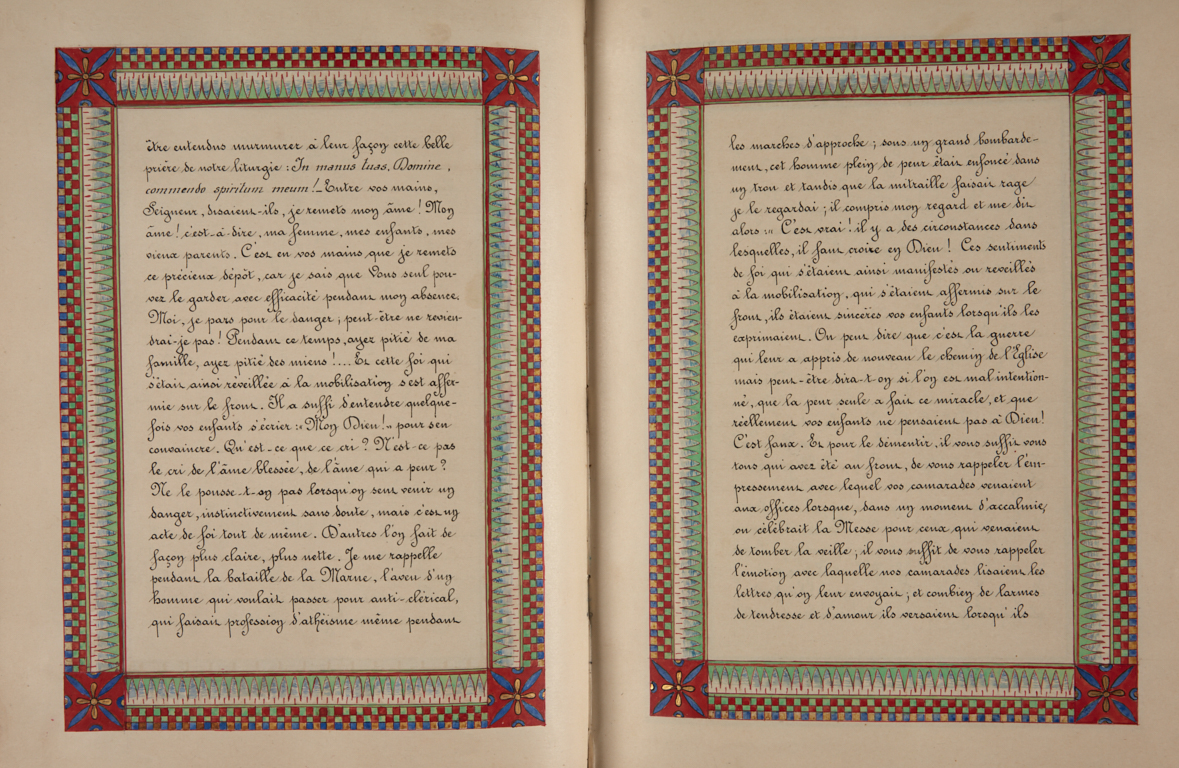 être entendus murmurer à leur façon cette belle
prière de notre liturgie : In manus tuas, Domine,
commendo spiritum meum !_ Entre vos mains,
Seigneur, disaient-ils, je remets mon âme ! Mon
âme ! c'est-à-dire, ma femme, mes enfants, mes
vieux parents. C'est en vos mains que je remets
ce précieux dépôt, car je sais que Vous seul pou-
vez le garder avec efficacité pendant mon absence.
Moi, je pars pour le danger ; peut-être ne revien-
drai-je pas ! Pendant ce temps, ayez pitié de ma
famille, ayez pitié des miens !... Et cette foi qui
s'était ainsi réveillée à la mobilisation s'est affer-
mie sur le front. Il a suffi d'entendre quelque-
fois vos enfants s'écrier : « Mon Dieu ! » pour s'en
convaincre. Qu'est-ce que ce cri ? N'est-ce pas
le cri de l'âme blessée, de l'âme qui a peur ?
Ne le pousse-t-on pas lorsqu'on sent venir un
danger, instinctivement sans doute, mais c'est un
acte de foi tout de même. D'autres l'on fait de
façon plus claire, plus nette. Je me rappelle
pendant la bataille de la Marne, l'aveu d'un
homme qui voulait passer pour anti-clérical,
qui faisait profession d'athéisme même pendant
les marches d'approche ; sous un grand bombarde-
ment, cet homme plein de peur était enfoncé dans
un trou et tandis que la mitraille faisait rage
je le regardai ; il compris mon regard et me dit
alors :« C'est vrai ! il y a des circonstances dans
lesquelles, il faut croire en Dieu ! Ces sentiments
de foi qui s'étaient ainsi manifestés ou reveillés
à la mobilisation, qui s'étaient affermis sur le
front, ils étaient sincères vos enfants lorsqu'ils les
exprimaient. On peut dire que c'est la guerre
qui leur a appris de nouveau le chemin de l'Eglise
mais peut-être dira-t-on si l'on est mal intention-
né, que la peur seule a fait ce miracle, et que
réellement vos enfants ne pensaient pas à Dieu !
C'est faux. Et pour le démentir, il vous suffit vous
tous qui avez été au front, de vous rappeler l'em-
pressement avec lequel vos camarades venaient
aux offices lorsque, dans un moment d'accalmie,
on célébrait la Messe pour ceux qui venaient
de tomber la veille ; il vous suffit de vous rappeler
l'émotion avec laquelle nos camarades lisaient les
lettres qu'on leur envoyait ; et combien de larmes
de tendresse et d'amour ils versaient lorsqu'ils